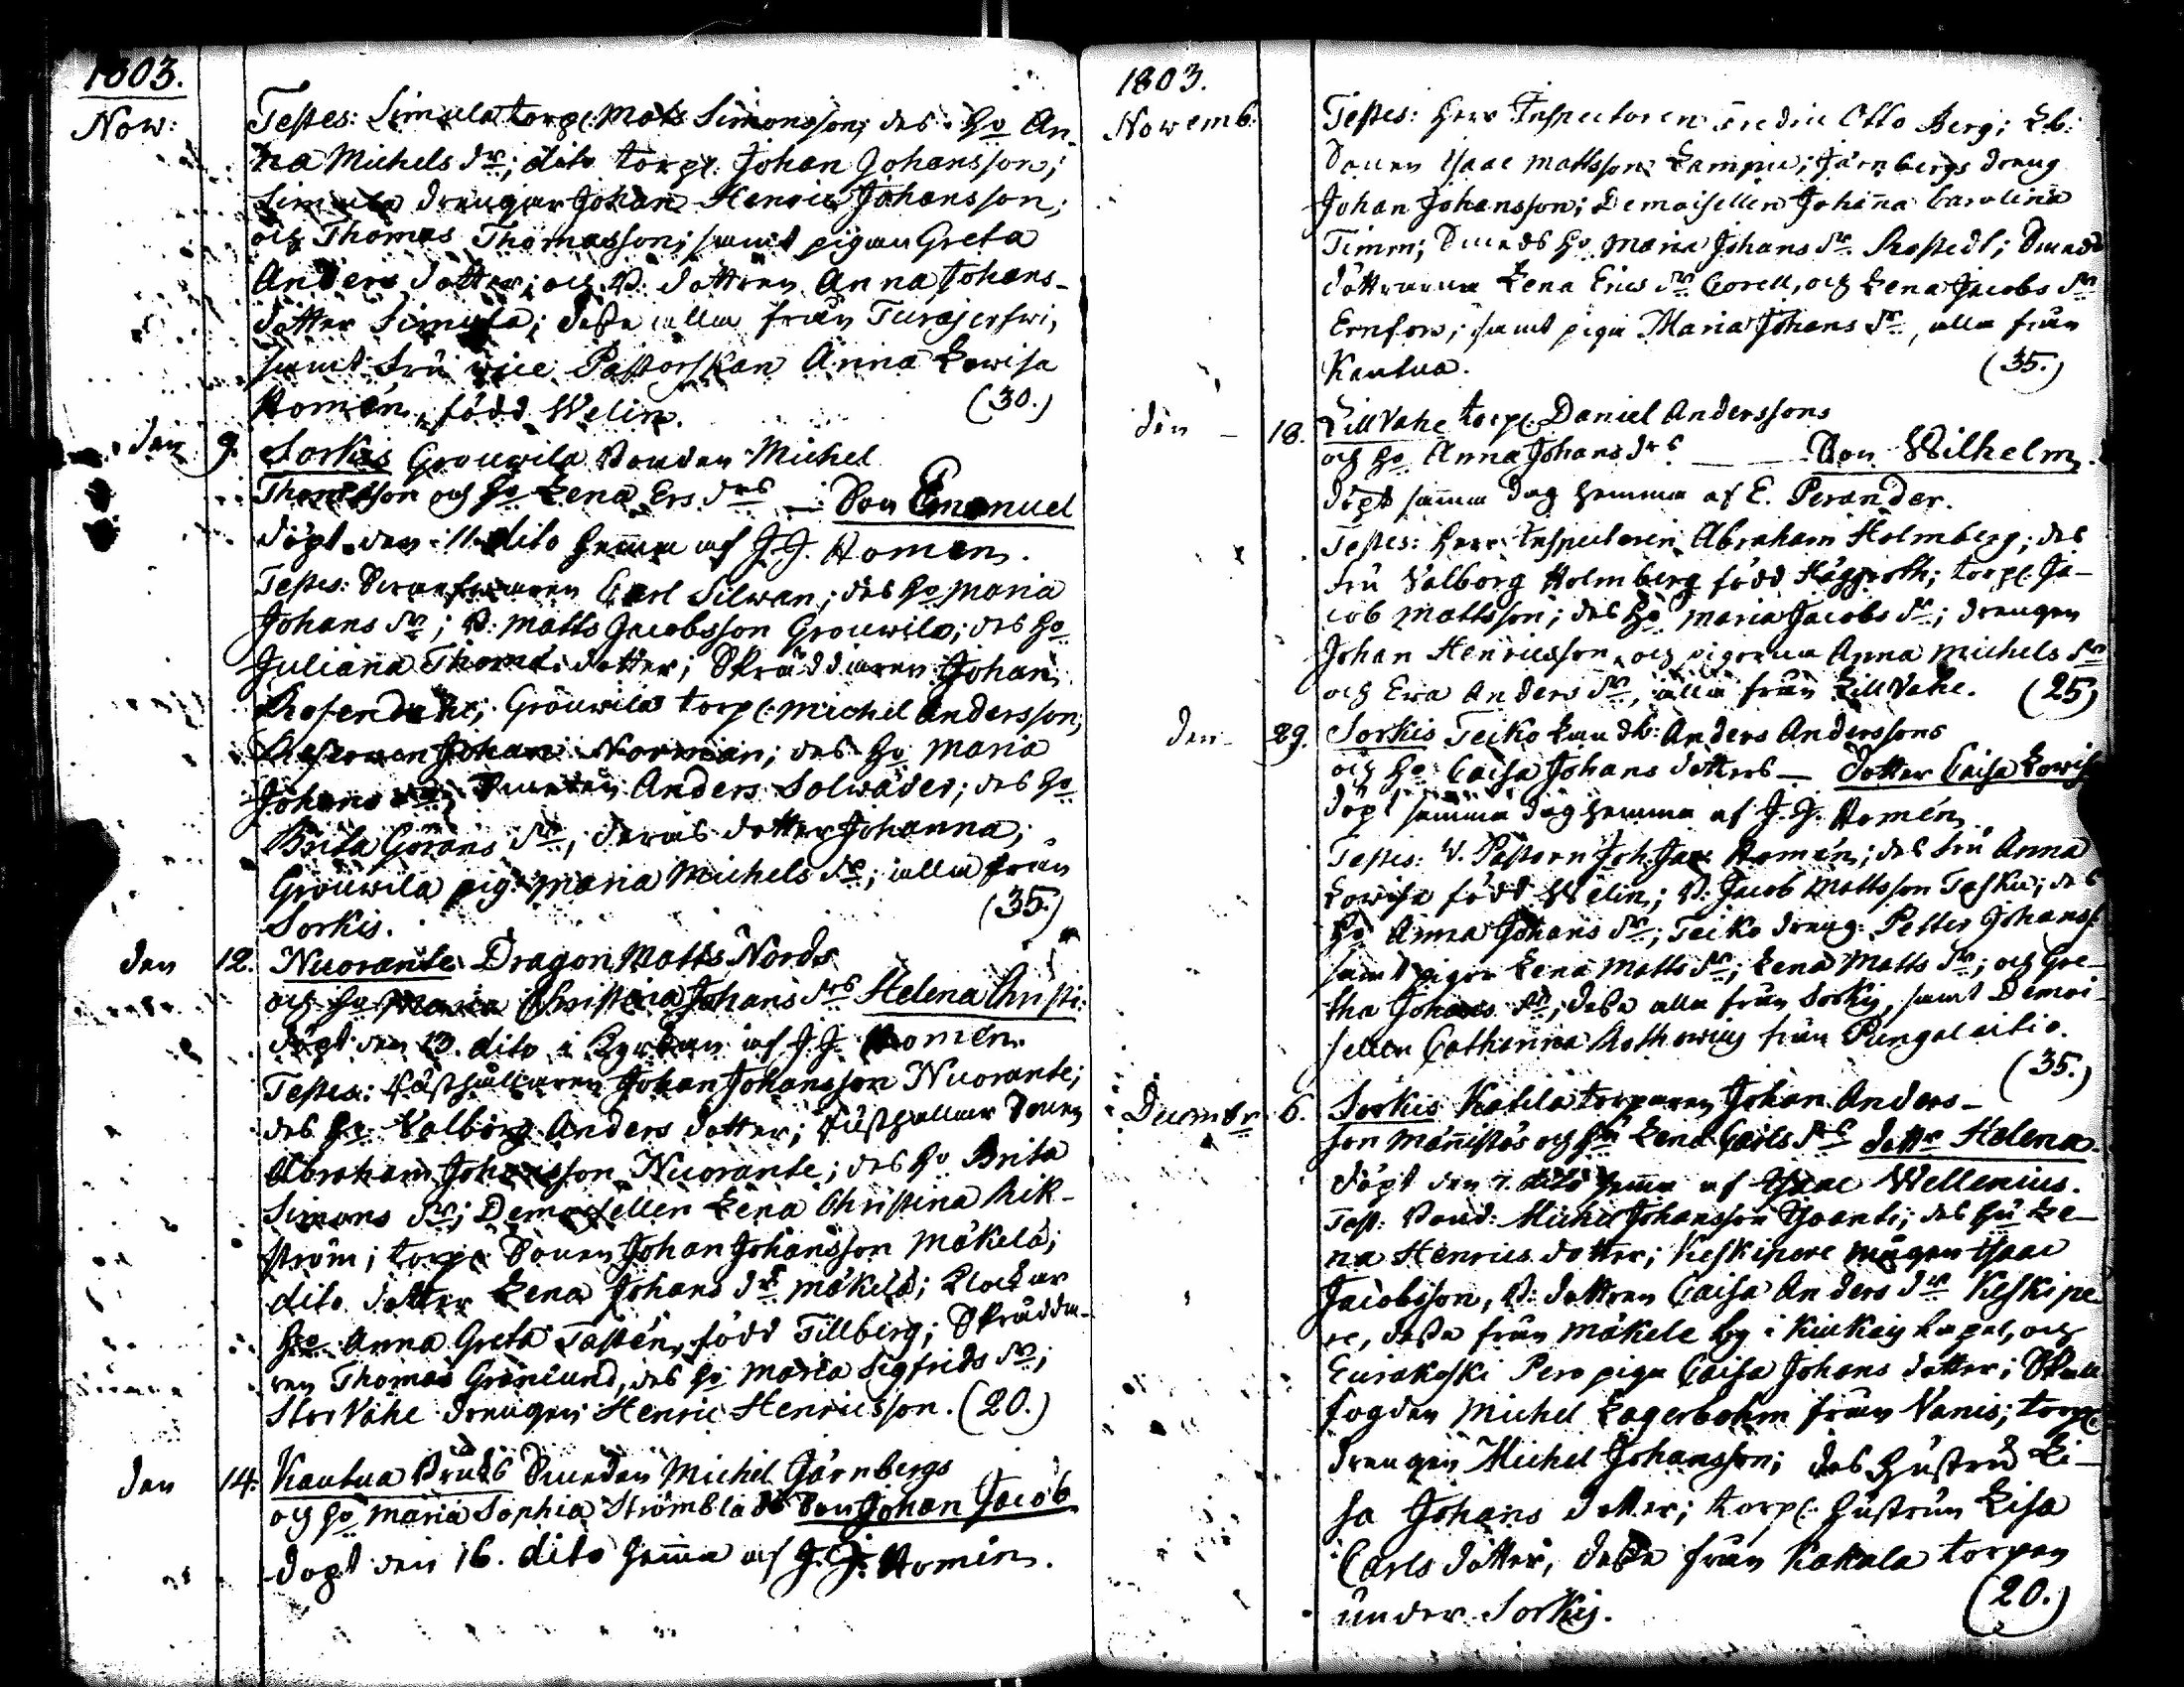 1803.
Now:
Testes: Simula torp: Mats Simonsson; des Ho An-
na Michels dr; dito torp: Johan Johansson;
Simula drengar Johan Henric Johansson;
och Thomas Thomasson; samt pigan Greta
Anders dotter; och B: dottren Anna Johans-
dotter Simula; desse alla från Turajerfwi,
samt Fru vice Pastorskan Anna Lowisa
Homén, född Welin. (30.)
den 9. Sorkis Grouwila Bonden Michel
Thomasson och Ho Lena Ers drs — Son Emanuel
döpt den 11. dito hemma af J. J. Homén.
Testes: Swarfwaren Carl Silwan; des Ho Maria
Johans dr; B: Matts Jacobsson Grouwila; des Ho
Juliana Thomæ dotter; Skräddaren Johan
Rosendahl; Grouwila torp: Michel Andersson;
Johan Norman; des Ho Maria
Johans dr; Anders Solwäder; des Ho
Brita Görans dr; deras dotter Johanna;
Grouwila pig: Maria Michels dr; alla från
Sorkis. (35.)
den 12. Nuorante Dragon Matts Nords
och Ho Maria Christina Johans drs Helena Christi:
döpt den 13. dito i Kyrkan af J. J. Homén.
Testes: Rusthållaren Johan Johansson Nuorante;
des Ho Valborg Anders dotter; Rusthållare Sonen
Abraham Johansson Nuorante; des Ho Brita
Simons dr; Demoisellen Lena Christina Rik-
ström; torp: Sonen Johan Johansson Mäkelä;
dito dotter Lena Johans dr Mäkelä; Klockar
Ho Anna Greta Tastén, född Tillberg; Skrädda-
ren Thomas Grönlund, des Ho Maria Sigfrids dr;
Stor Vahe drengen Henric Henricsson. (20.)
den 14. Kautua Bruks Smeden Michel Järnbergs
och Ho Maria Sophia Strömblads Son Johan Jacob
döpt den 16. dito hemma af J. J. Homén.
1803.
Novemb:
Testes: Herr Inspectoren Fredric Otto Berg; Lb:
Sonen Isaac Mattsson Lampin; Järnbergs dreng
Johan Johansson; Demoisellen Johanna Carolina
Timen; Smeds Ho Maria Johans dr Rostedt; Smeds
döttrarna Lena Erics dr Gorell, och Lena Jacobs dr
Ernfors; samt piga Maria Johans dr, alla från
Kautua. (35.)
den 18. LillVahe torp: Daniel Anderssons
och Ho Anna Johans drs — Son Wilhelm.
döpt samma dag hemma af E. Perander.
Testes: Herr Inspectoren Abraham Holmberg; des
Fru Valborg Holmberg född Häggroth; torp: Ja-
cob Mattsson; des Ho Maria Jacobs dr; drengen
Johan Henricsson, och pigorna Anna Michels dr
och Ewa Anders dr, alla från LillVahe. (25)
den 29. Sorkis Teiko Landb: Anders Anderssons
och Ho Caisa Johans dotters — dotter Caisa Lowisa
döpt samma dag hemma af J. J. Homén.
Testes: V. Pastorn Joh Jac Homén; des Fru Anna
Lowisa född Welin; B: Jacob Mattsson Teska; des
Ho Anna Johans dr; Teiko dreng: Petter Johanss:
samt pigor Lena Matts dr; Lena Matts dr; och Gre-
tha Johans dr; desse alla från Sorkis, samt Demoi-
sellen Catharina Rothowius från Pungalaitio.
(35.)
Decembr 6. Sorkis Kakela torparen Johan Anders-
son Männistös och Hu Lena Carls drs dottr Helena.
döpt den 7. dito hemma af Isaac Wellenius.
Test: Bond: Michel Johansson Isoanti; des Hu Le-
na Henrics dotter; Keskipere mågen Isaac
Jacobsson, B: dottren Caisa Anders dr Keskipe-
re, desse från Mäkele by i Kiukais Capel, och
Eurakoski Pero piga Caisa Johans dotter; Skall
fogden Michel Lagerbohm från Vanis; torp:
drengen Michel Johansson; des Hustru Li-
sa Johans dotter; torp: Hustrun Lisa
Carls dotter, desse från Kakala torpen
under Sorkis. (20.)